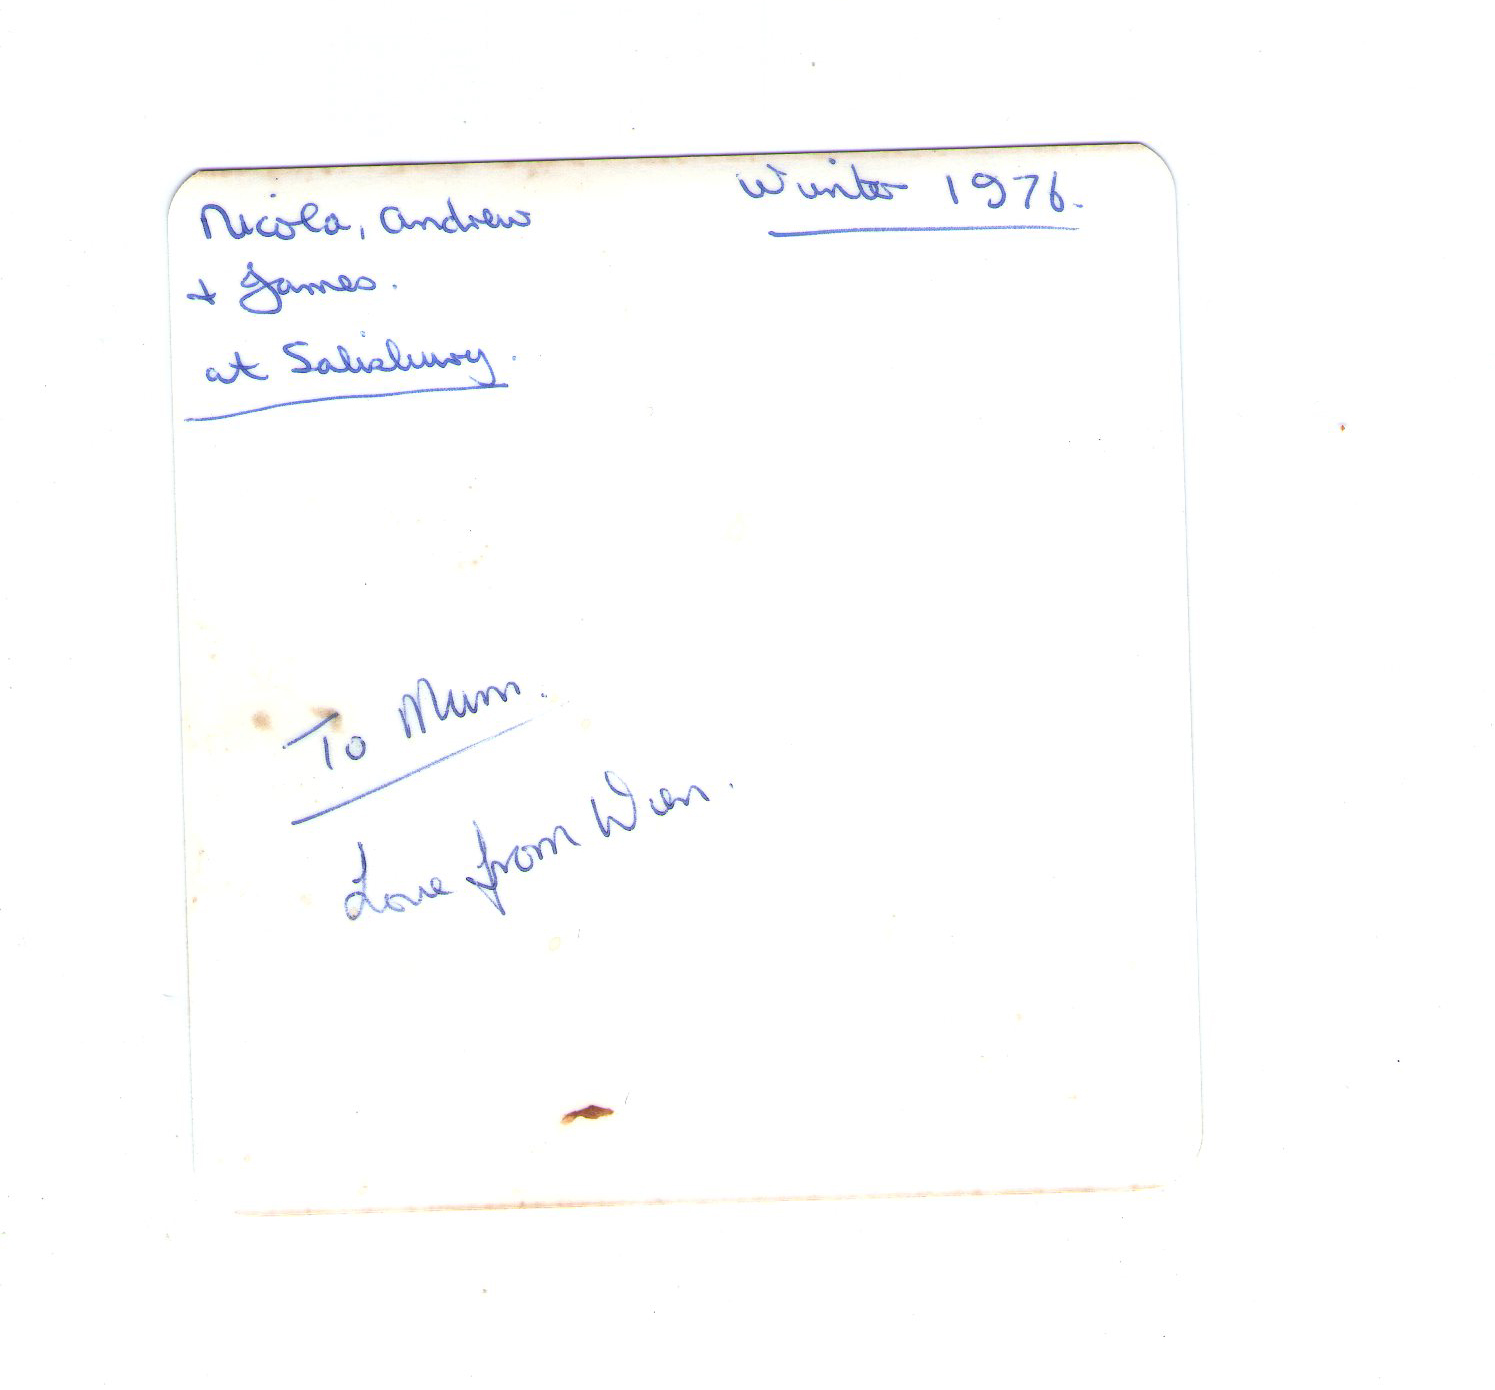 Nicola, Andrew
+ James.
at Salisbury.
Winter 1976.
To Mum.
Love from